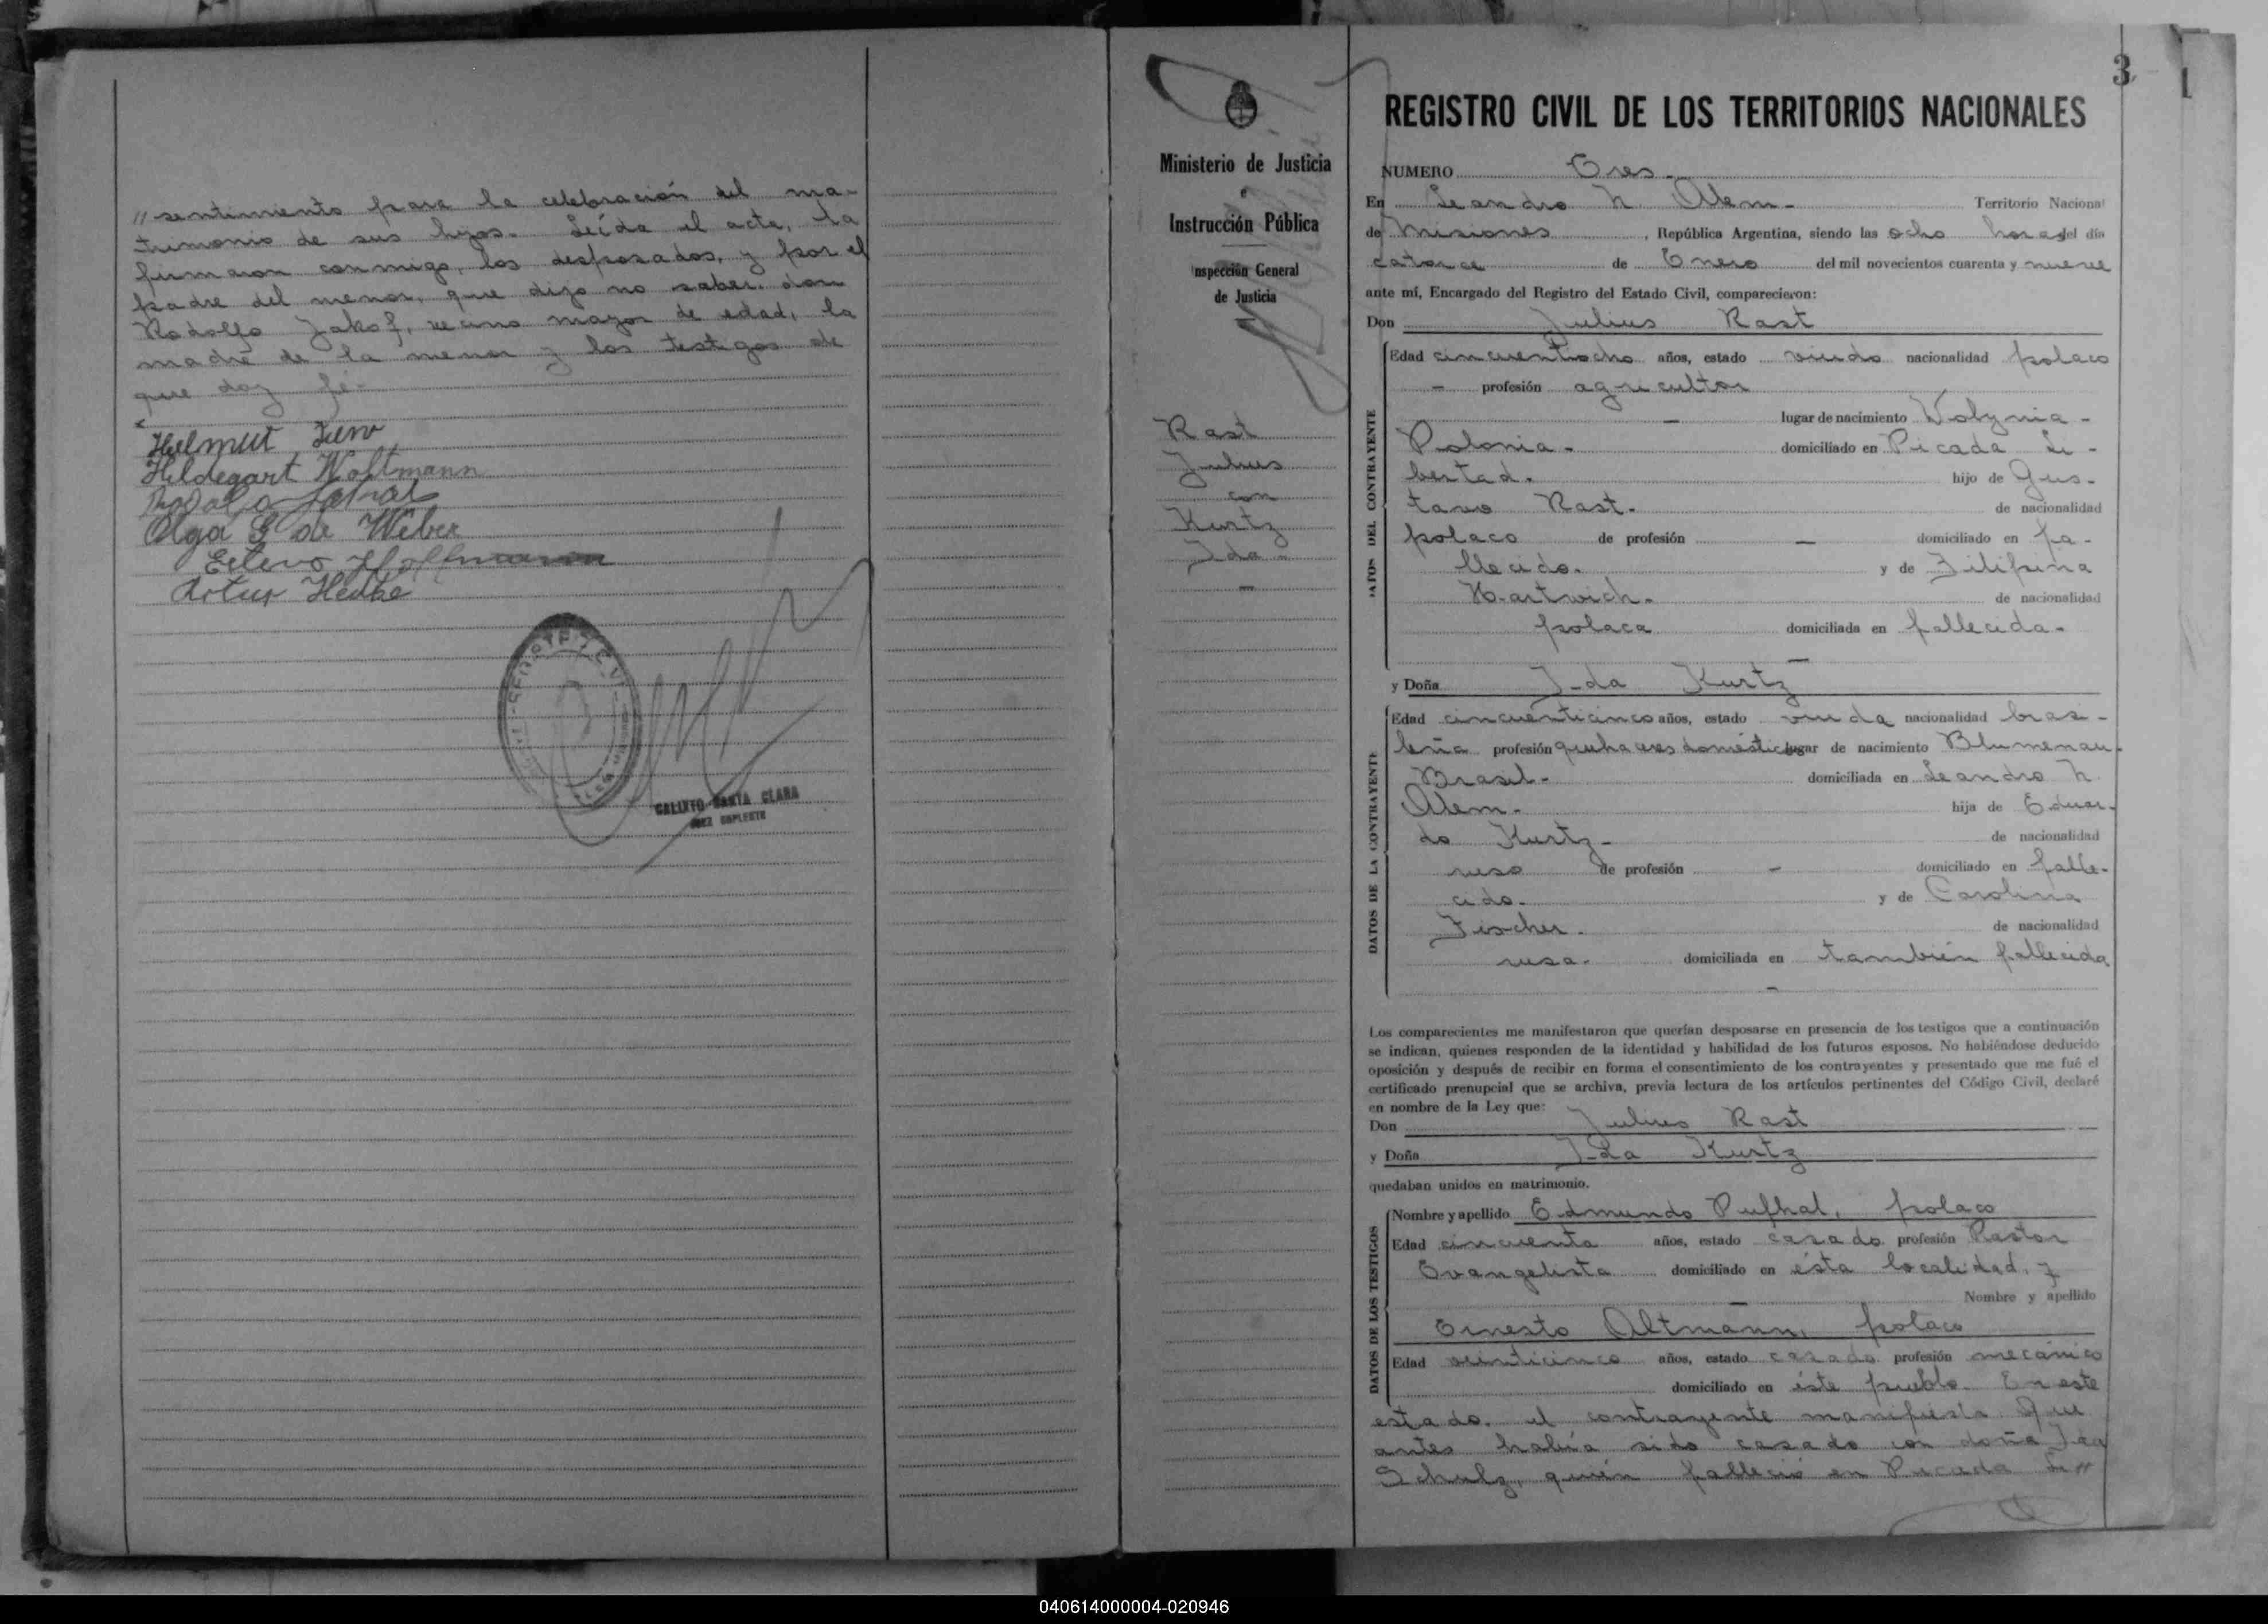 "sentimiento para la celebración del ma-
trimonio de sus hijos. Leída el acta, la
firmaron conmigo, los desposados, y por el
padre del menor, que dijo no saber, don
Rodolfo Jakof, vecino mayor de edad, la
madre de la menor y los testigos de
que doy fé.-
Helmut
Hildegart Woltmann
Olga G de Weber
Hoffmann
Artur Hedke
CALIXTO SANTA CLARA
JUEZ SUPLENTE
3
1
Ministerio de Justicia
e
Instrucción Pública
Inspección General
de Justicia
Rast
Julius
con
Kurtz
Ida -
-
REGISTRO CIVIL DE LOS TERRITORIOS NACIONALES
NUMERO Tres -
En Leandro N. Alem - Territorio Nacional
de Misiones, República Argentina, siendo las ocho horas del día
catorce de Enero del mil novecientos cuarenta y nueve
ante mí, Encargado del Registro del Estado Civil, comparecieron:
Don Julius Rast
DATOS DEL CONTRAYENTE
Edad cincuentiocho años, estado viudo nacionalidad polaco
- profesión agricultor
- lugar de nacimiento Wolynia -
Polonia - domiciliado en Picada Li-
bertad. hijo de Gus-
tavo Rast. de nacionalidad
polaco de profesión - domiciliado en fa-
llecido. y de Filipina
Hartwich. de nacionalidad
polaca domiciliada en fallecida-
-
y Doña Ida Kurtz
DATOS DE LA CONTRAYENTE
Edad cincuenticinco años, estado viuda nacionalidad brasi-
leña profesión quehaceres domésticos lugar de nacimiento Blumenau-
Brasil- domiciliada en Leandro N.
Alem- hija de Eduar-
do Kurtz- de nacionalidad
ruso de profesión - domiciliado en falle-
cido. y de Carolina
Fischer. de nacionalidad
rusa. domiciliada en también fallecida
-
Los comparecientes me manifestaron que querían desposarse en presencia de los testigos que a continuación
se indican, quienes responden de la identidad y habilidad de los futuros esposos. No habiéndose deducido
oposición y después de recibir en forma el consentimiento de los contrayentes y presentado que me fué el
certificado prenupcial que se archiva, previa lectura de los artículos pertinentes del Código Civil, declaré
en nombre de la Ley que:
Don Julius Rast
y Doña Ida Kurtz
quedaban unidos en matrimonio.
DATOS DE LOS TESTIGOS
Nombre y apellido Edmundo Pufhal, polaco
Edad cincuenta años, estado casado profesión Pastor
Evangelista domiciliado en ésta localidad, y
- Nombre y apellido
Ernesto Altmann, polaco
Edad veinticinco años, estado casado profesión mecánico
domiciliado en éste pueblo. En este
estado, el contrayente manifiesta que
antes había sido casado con doña
Schulz, quién falleció en Picada Li"
040614000004-020946